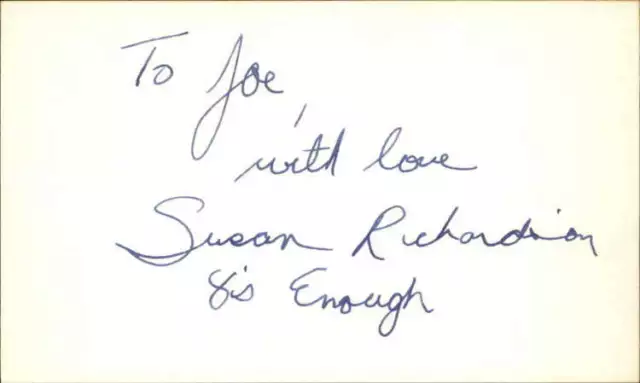 To Joe,
with love
Susan Richardson
8's Enough